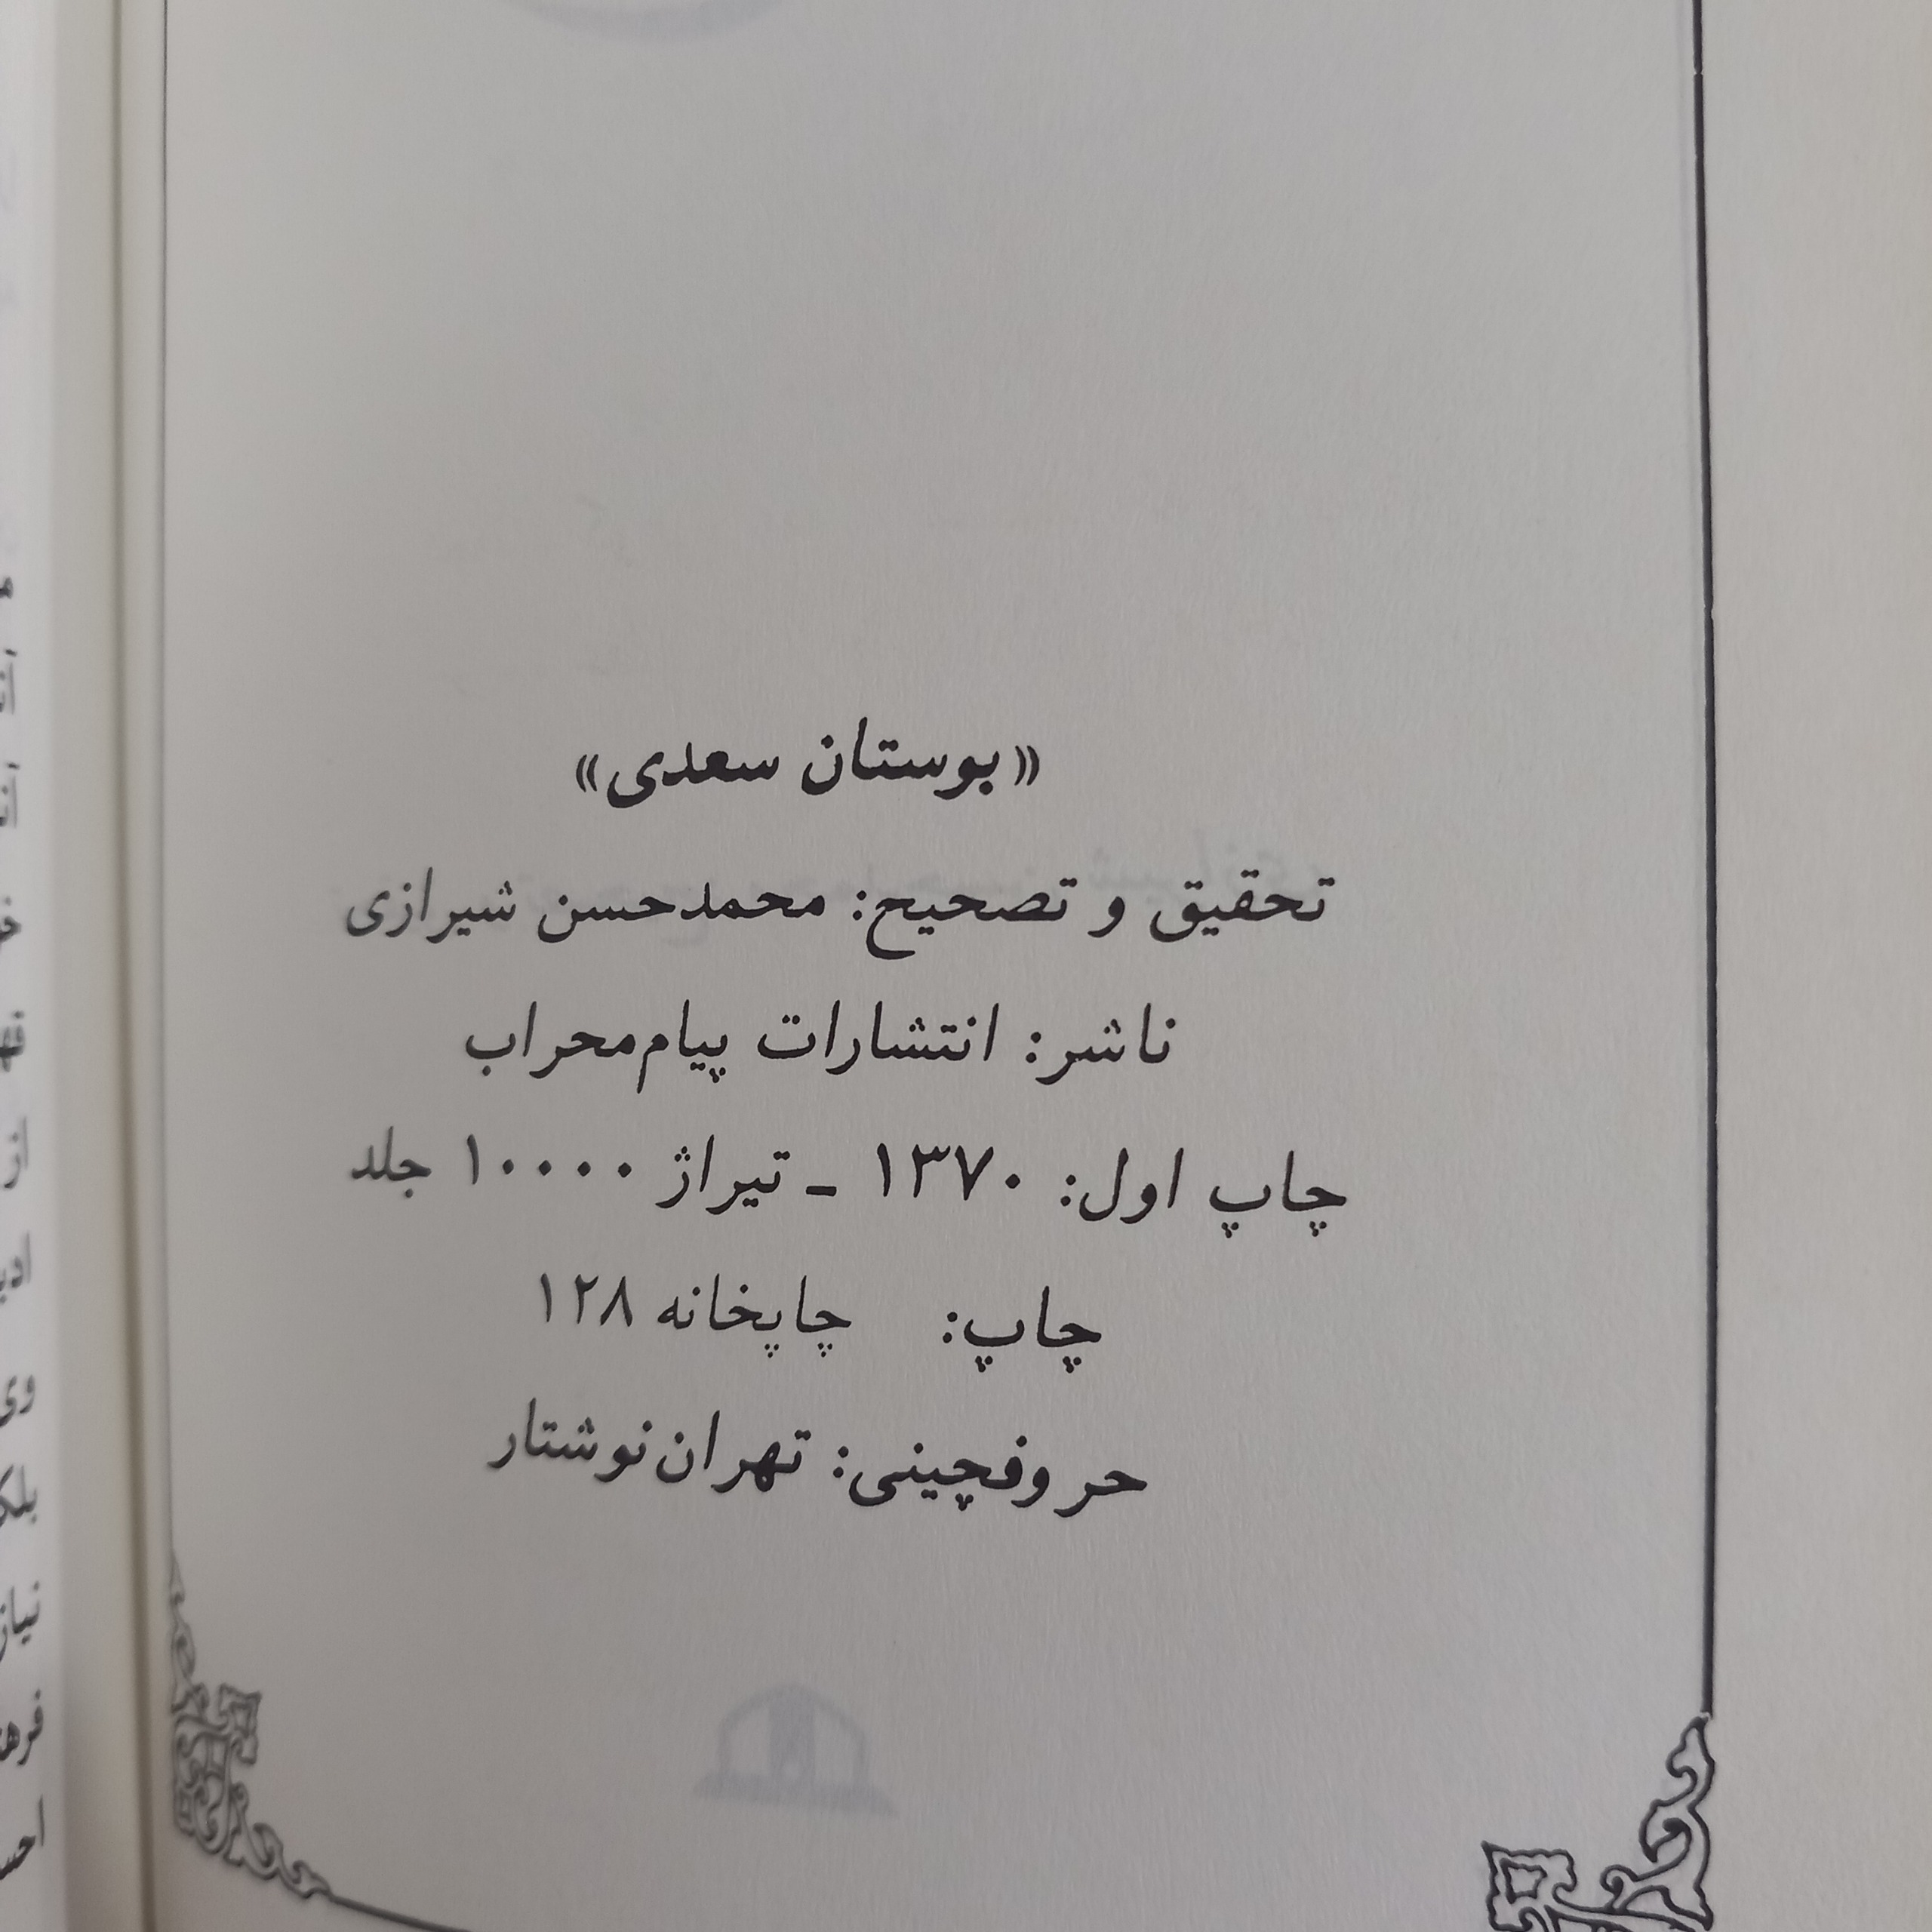 «بوستان سعدی»
تحقیق و تصحیح: محمدحسن شیرازی
ناشر: انتشارات پیام‌محراب
چاپ اول: ۱۳۷۰ ـ تیراژ ۱۰۰۰۰ جلد
چاپ: چاپخانه ۱۲۸
حروفچینی: تهران‌نوشتار